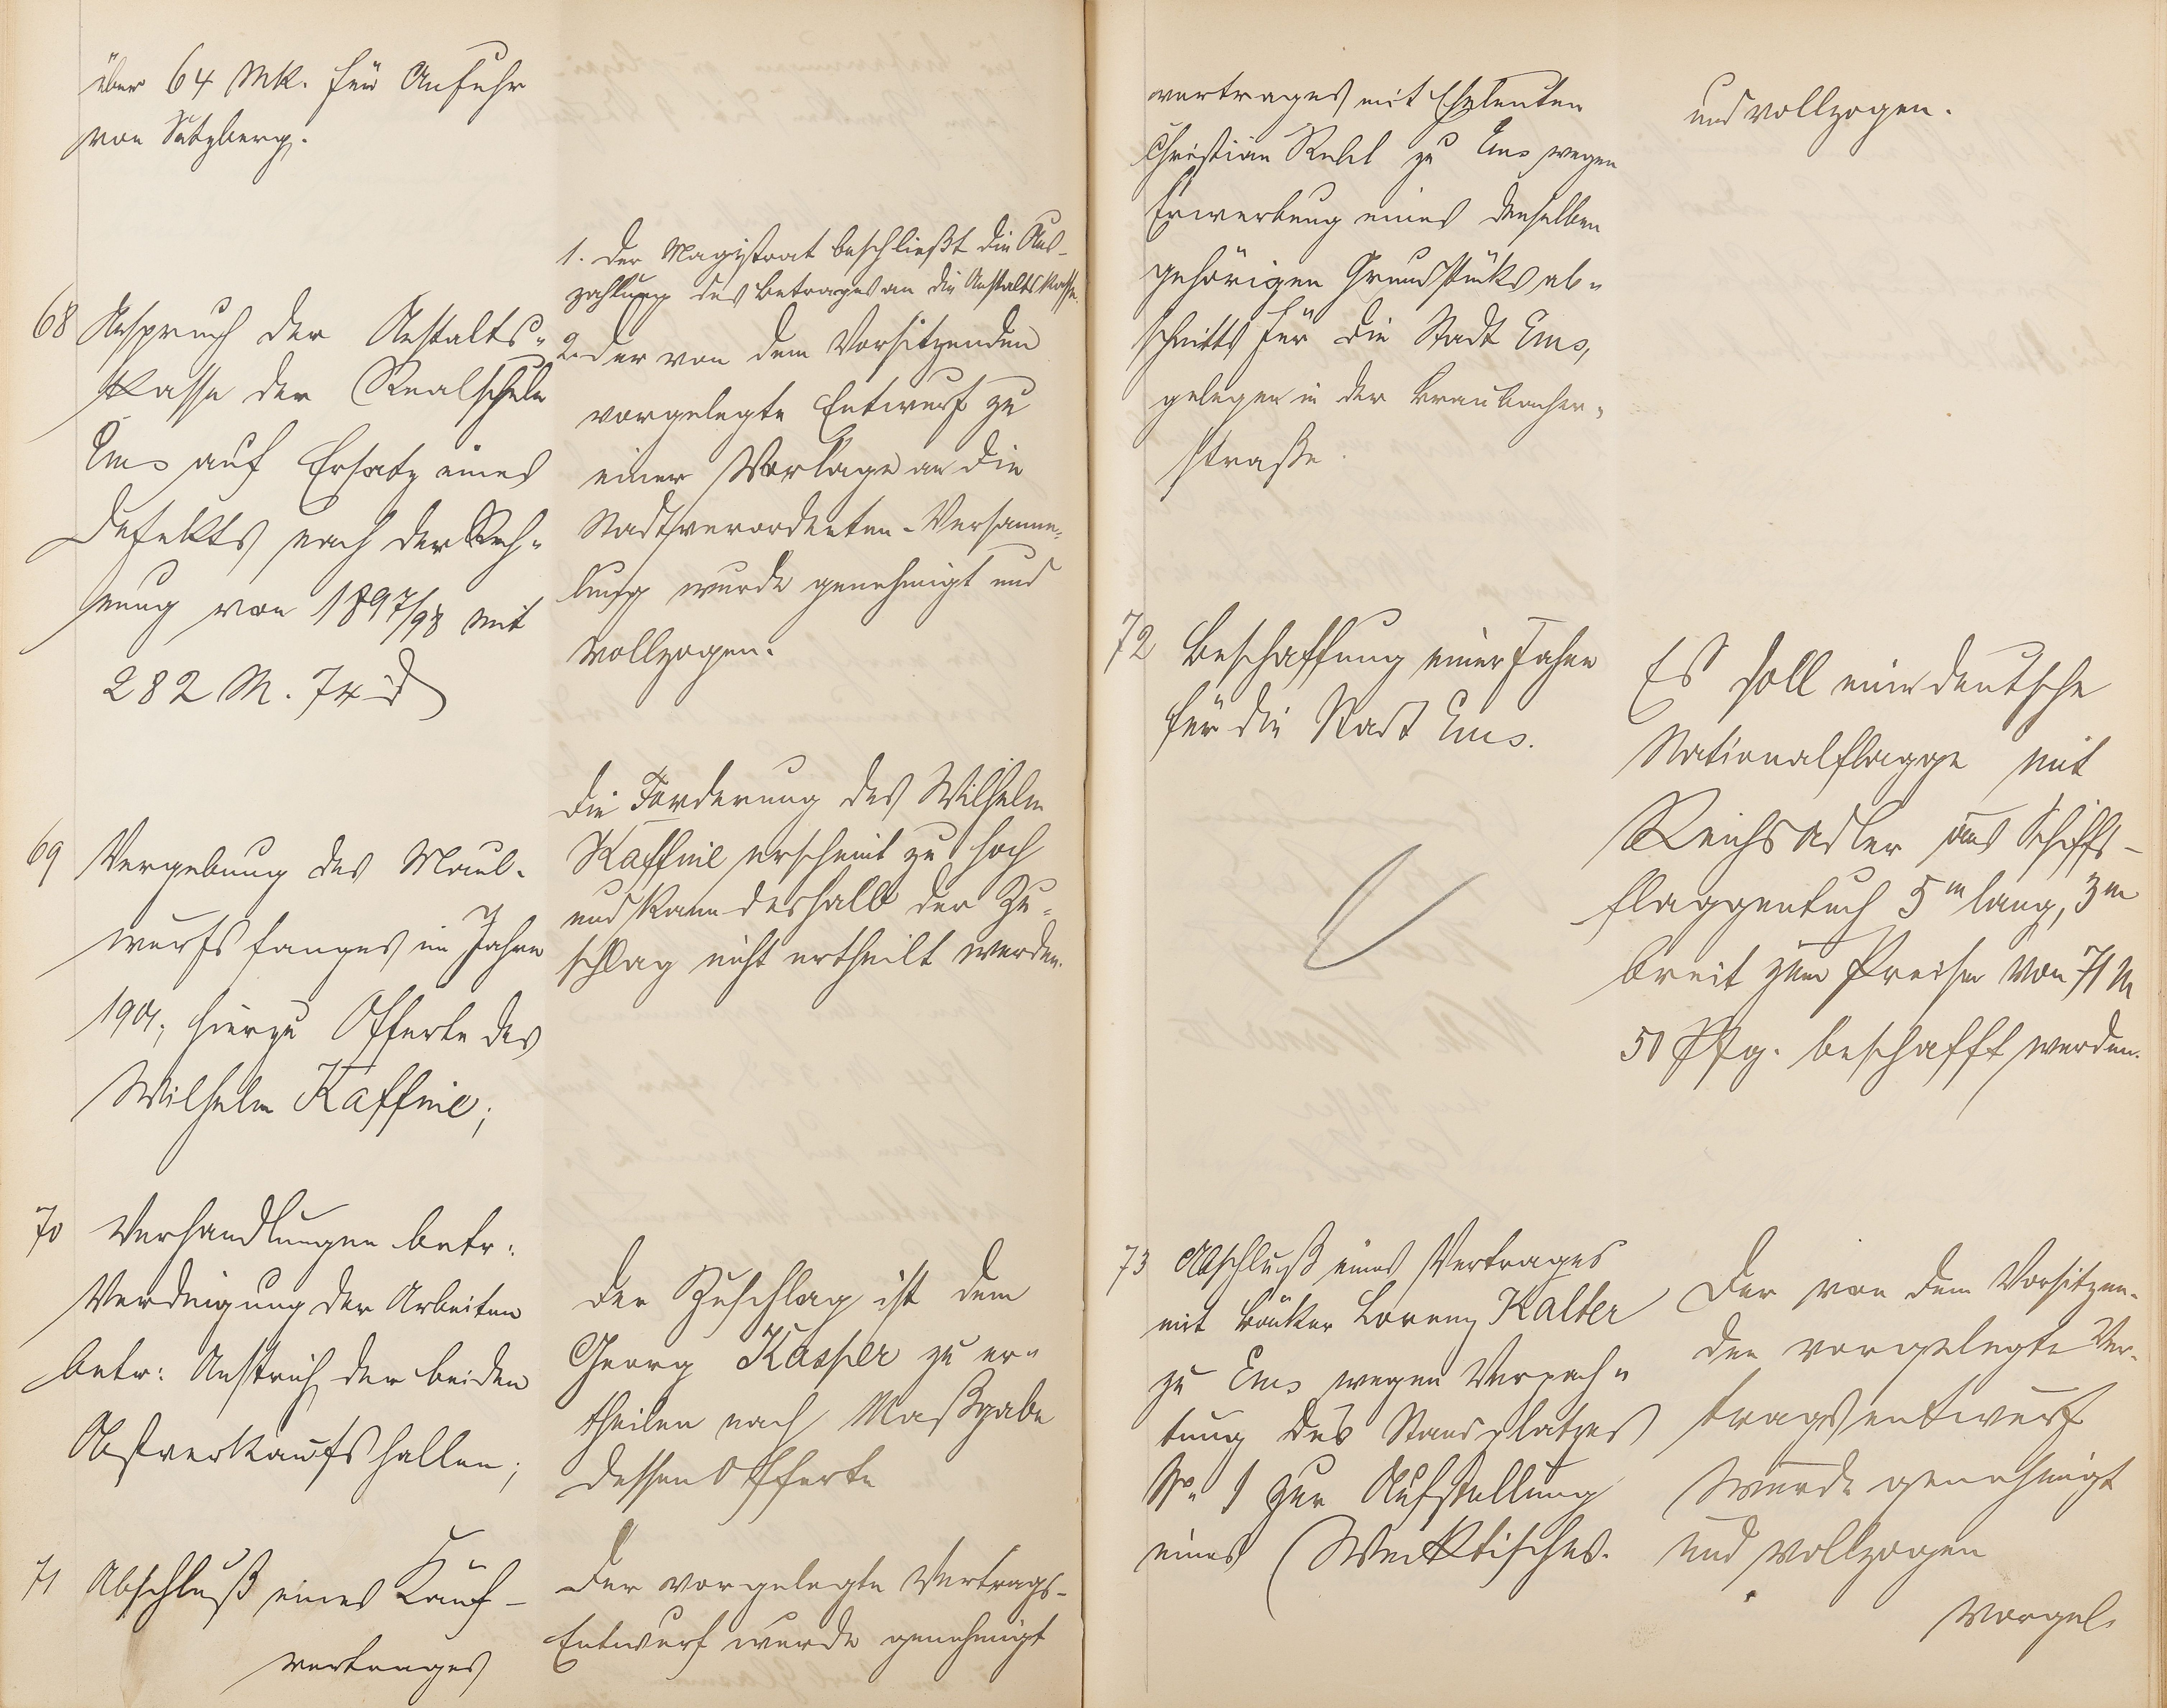 über 64 Mk. für Anfuhr
von Setzberg.
68 Anspruch der Anstalts-
kasse der Realschule
Ems auf Ersatz eines
Defekts nach der Rech-
nung von 1897/98 mit
282 M. 74 d
1. Der Magistrat beschließt die Aus-
zahlung des Betrages an die Anstaltskasse.
2. Der von dem Vorsitzenden
vorgelegte Entwurf zu
einer Vorlage an die
Stadtverordneten-Versamm-
lung wurde genehmigt und
vollzogen.
69 Vergebung des Maul-
wurfsfanges im Jahre
1901; hierzu Offerte des
Wilhelm Kaffine;
Die Forderung des Wilhelm
Kaffine erscheint zu hoch
und kann deshalb der Zu-
schlag nicht ertheilt werden.
70 Verhandlungen betr:
Verdingung der Arbeiten
betr: Anstrich der beiden
Obstverkaufshallen;
Der Zuschlag ist dem
Georg Kasper zu er-
theilen nach Maßgabe
dessen Offerte
71 Abschluß eines Kauf-
vertrages
Der vorgelegte Vertrags-
Entwurf wurde genehmigt
vertrages mit Eheleuten
Christian zu Ems wegen
Erwerbung eines denselben
gehörigen Grundstücksab-
schnitts für die Stadt Ems,
gelegen in der Braubacher-
straße.
und vollzogen.
72 Beschaffung einer Fahne
für die Stadt Ems.
Es soll eine deutsche
Nationalflagge mit
Reichsadler aus Schiffs-
flaggentuch 5m lang, 3m
breit zum Preise von 71 M
50 Pfg. beschafft werden.
73 Abschluß eines Vertrages
mit Bäcker Lorenz Kalber
zu Ems wegen Verpach-
tung des Standplatzes
No. 1 zur Aufstellung
eines Wecktisches.
Der von dem Vorsitzen-
den vorgelegte Ver-
tragsentwurf
wurde genehmigt
und vollzogen
Vorgel.